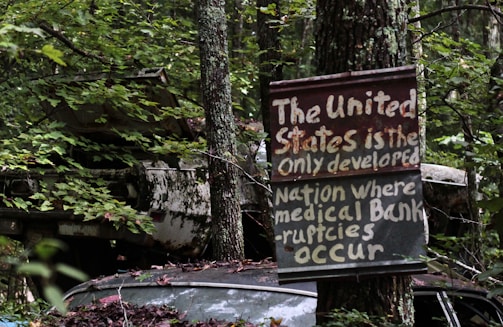 The United
States is the
only developed
Nation where
medical Bank
-ruptcies
occur